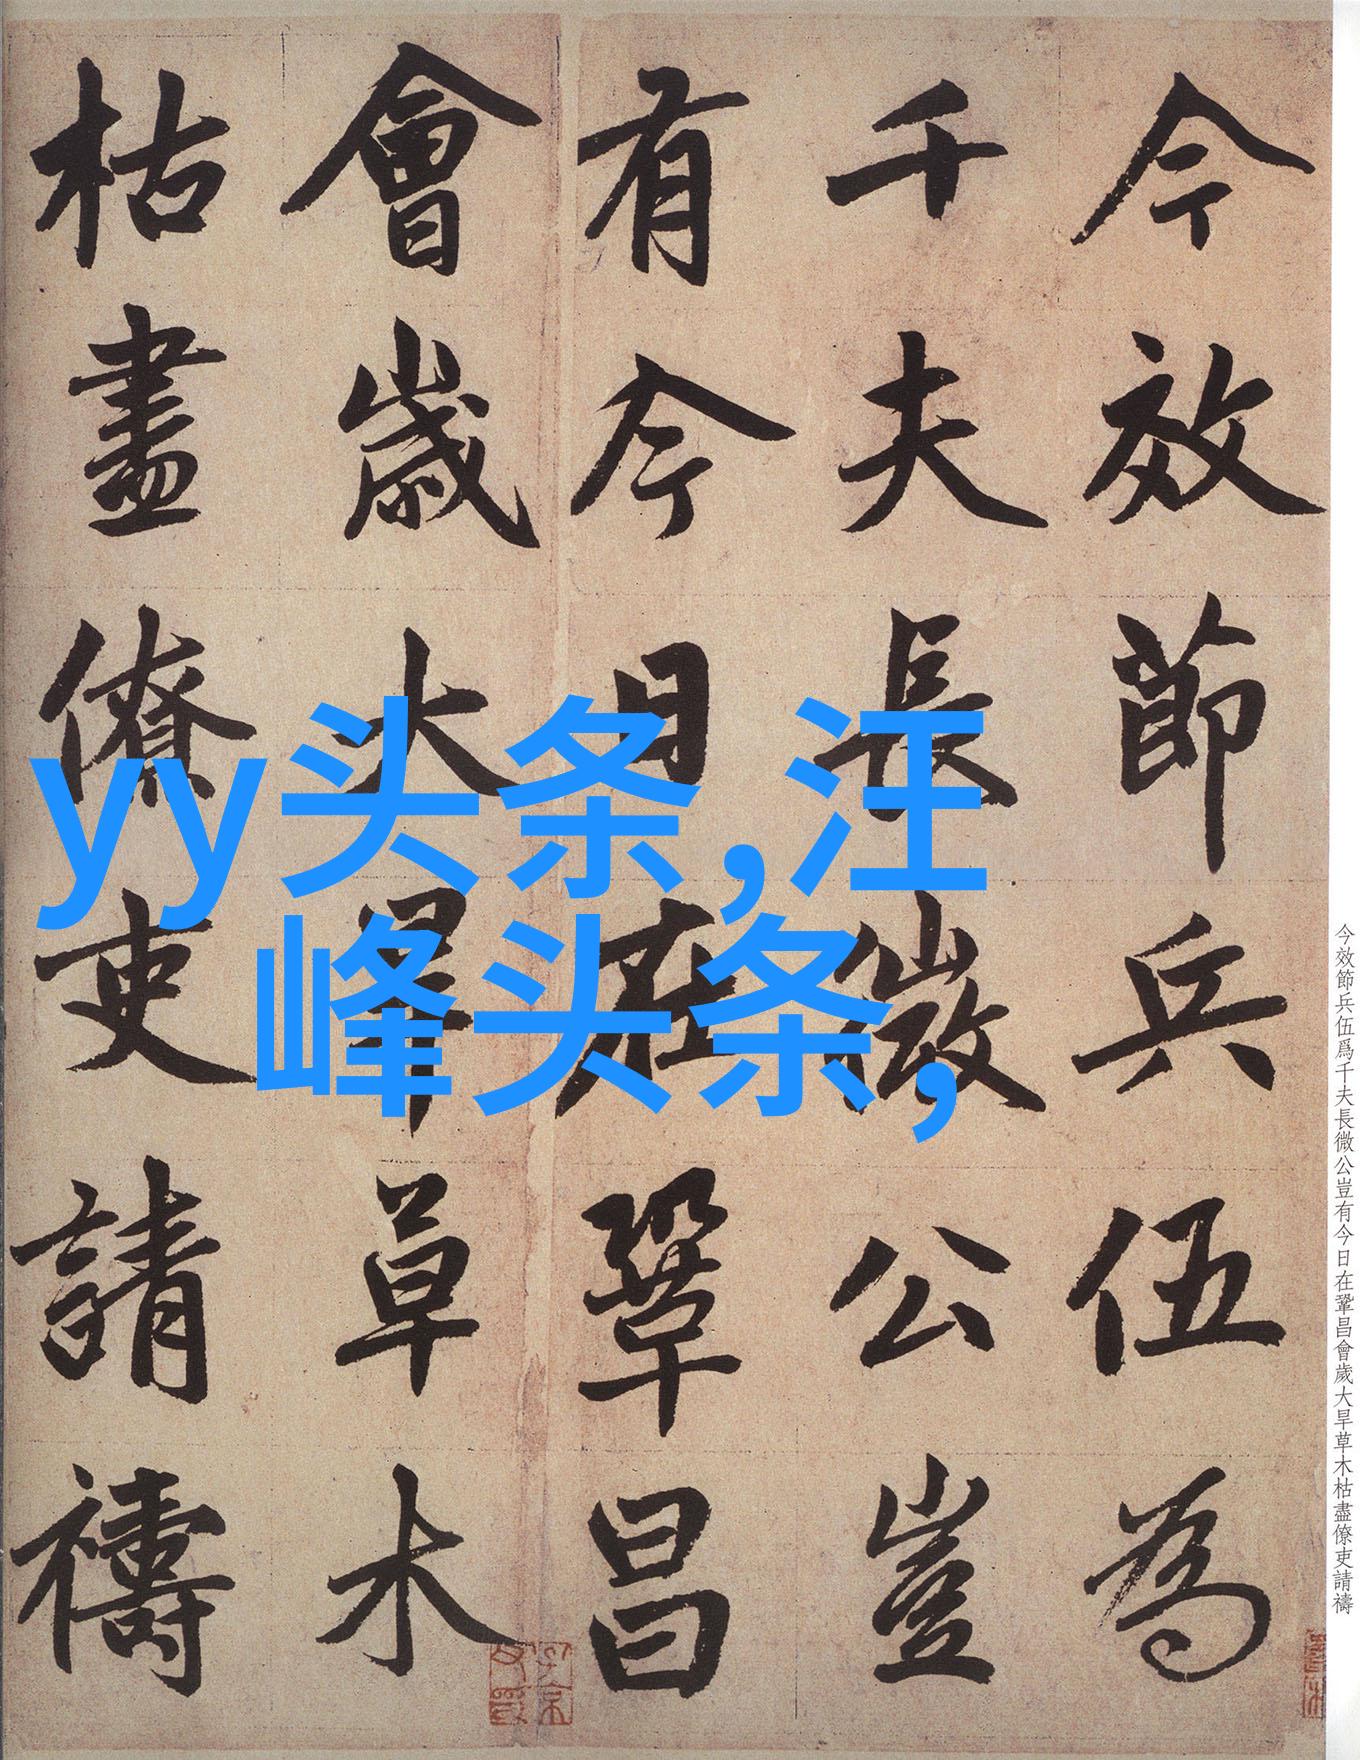 今效節兵伍為
千夫長微公豈
有今日在鞏昌
會歲大旱草木
枯盡僚吏請禱
yy头条,汪
峰头条,
今效節兵伍爲千夫長微公豈有今日在鞏昌會歲大旱草木枯盡僚吏請禱